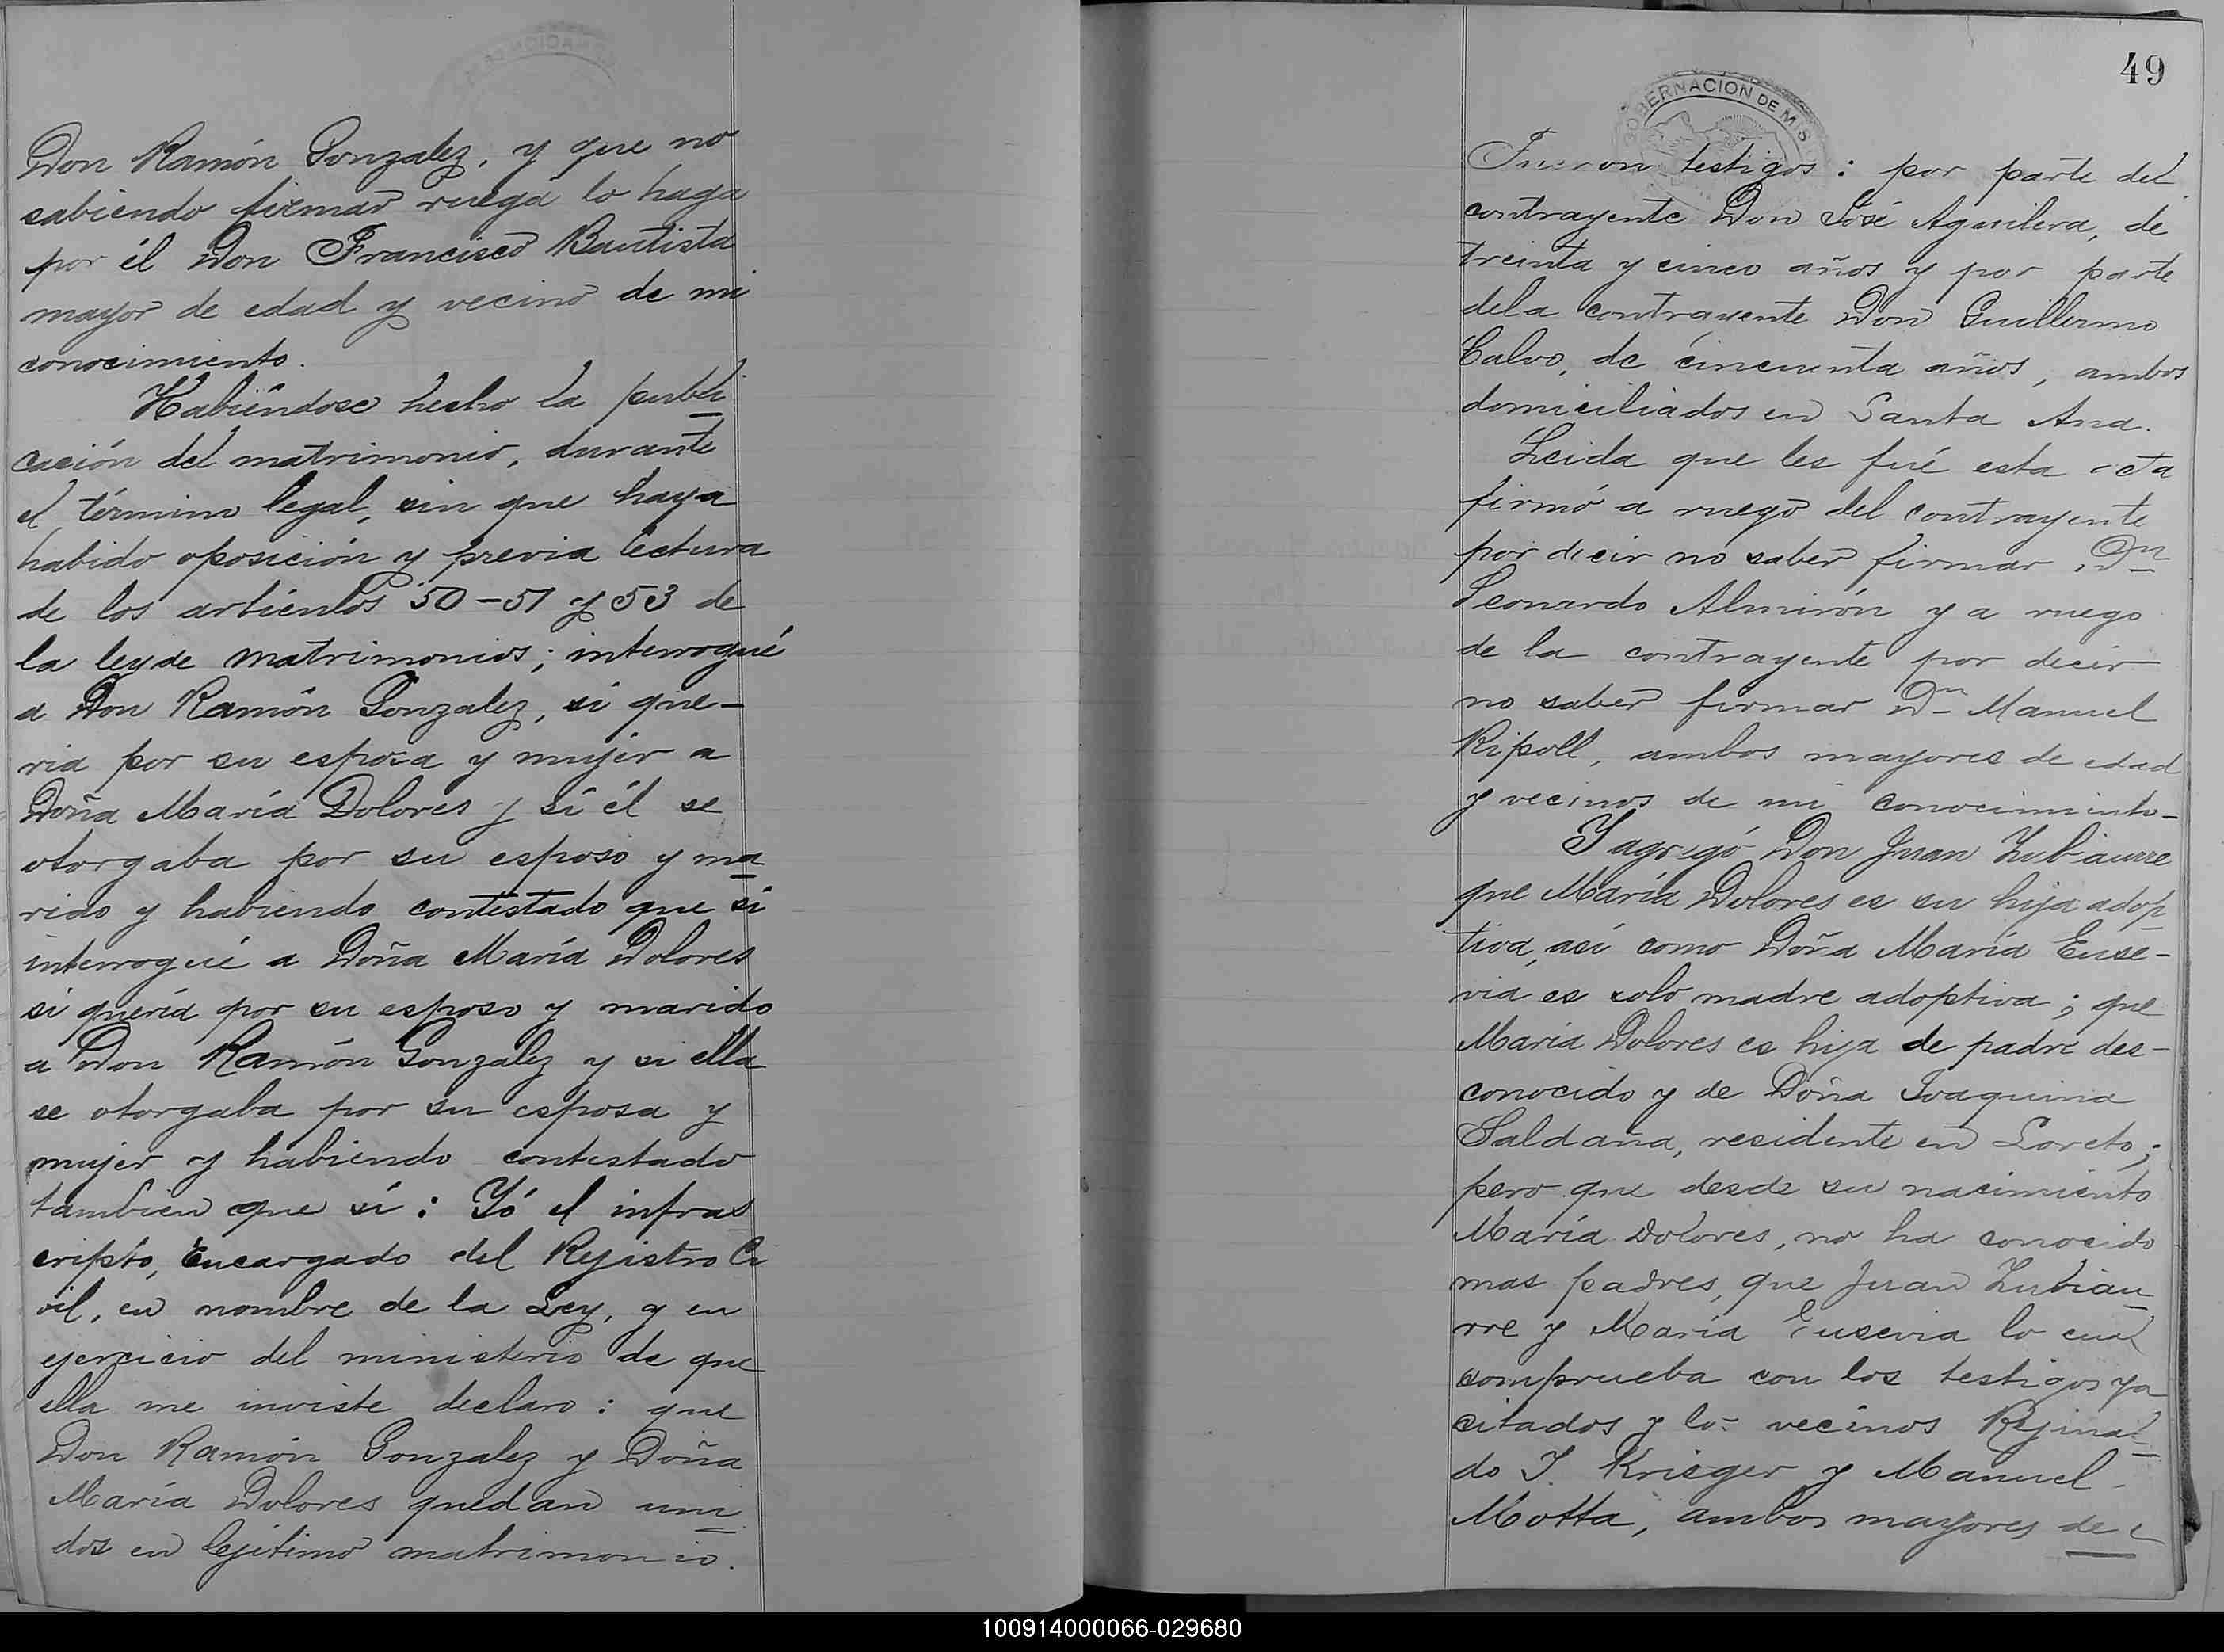 Don Ramón Gonzalez, y que no
sabiendo firmar ruega lo haga
por él Don Francisco Bautista
mayor de edad y vecino de mi
conocimiento.
Habiéndose hecho la publi
cación del matrimonio, durante
el término legal, sin que haya
habido oposición y previa lectura
de los artículos 50-51 y 53 de
la ley de matrimonios; interrogué
a Don Ramón Gonzalez, si que-
ria por su esposa y mujer a
Doña María Dolores y si él se
otorgaba por su esposo y ma
rido y habiendo contestado que si
interrogué a Doña María Dolores
si quería por su esposo y marido
a Don Ramón Gonzalez y si ella
se otorgaba por su esposa y
mujer y habiendo contestado
tambien que sí: Yó el infras
cripto, Encargado del Rejistro Ci
vil, en nombre de la Ley, y en
ejercicio del ministerio de que
ella me inviste declaro: que
Don Ramón Gonzalez y Doña
María Dolores quedan uni
dos en lejítimo matrimonio.
49
GOBERNACION DE MIS
Fueron testigos: por parte del
contrayente Don José Aguilera, de
treinta y cinco años y por parte
dela contrayente Don Guillermo
Calvo, de cincuenta años, ambos
domiciliados en Santa Ana.
Leida que les fué esta acta
firmó a ruego del contrayente
por decir no saber firmar, Dn
Leonardo Almirón y a ruego
de la contrayente por decir
no saber firmar Dn Manuel
Ripoll, ambos mayores de edad
y vecinos de mi conocimiento-
Y agregó Don Juan Zubiaurre
que María Dolores es su hija adop
tiva, así como Doña María Euse-
via es solo madre adoptiva; que
María Dolores es hija de padre des-
conocido y de Doña Joaquina
Saldaña, residente en Loreto;
pero que desde su nacimiento
María Dolores, no ha conocido
mas padres, que Juan Zubiau
rre y María Eusevia lo cual
comprueba con los testigos ya
citados y los vecinos Rejinal
do J. Krieger y Manuel
Motta, ambos mayores de e
100914000066-029680